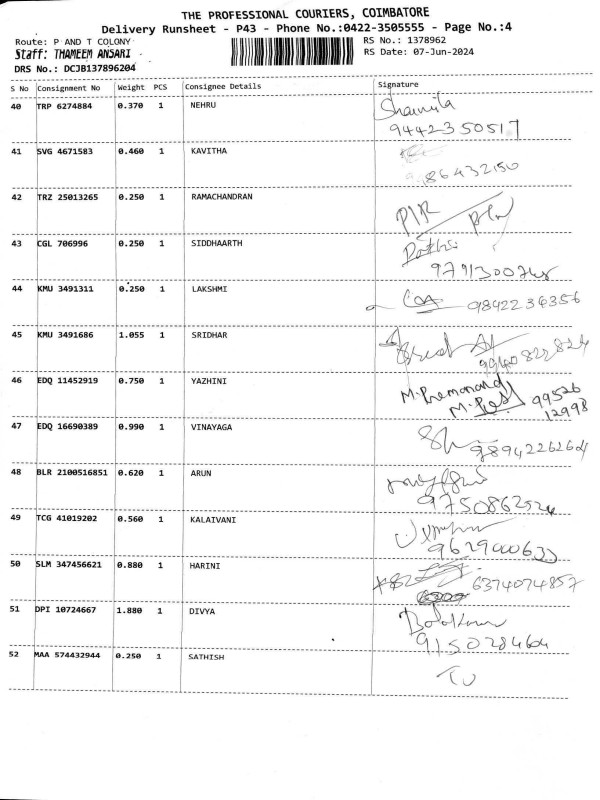 THE PROFESSIONAL COURIERS, COIMBATORE
Delivery Runsheet - P43 - Phone No.:0422-3505555 - Page No.:4
Route: P AND T COLONY RS No.: 1378962
Staff: THAMEEM ANSARI RS Date: 07-Jun-2024
DRS No.: DCJB137896204
S No Consignment No Weight PCS Consignee Details Signature
40 TRP 6274884 0.370 1 NEHRU
9442350517
41 SVG 4671583 0.460 1 KAVITHA
42 TRZ 25013265 0.250 1 RAMACHANDRAN
43 CGL 706996 0.250 1 SIDDHAARTH
44 KMU 3491311 0.250 1 LAKSHMI
9842236356
45 KMU 3491686 1.055 1 SRIDHAR
46 EDQ 11452919 0.750 1 YAZHINI
M. Premanand 99526
12998
47 EDQ 16690389 0.990 1 VINAYAGA
9894226264
48 BLR 2100516851 0.620 1 ARUN
9750862524
49 TCG 41019202 0.560 1 KALAIVANI
50 SLM 347456621 0.880 1 HARINI
6374074857
51 DPI 10724667 1.880 1 DIVYA
52 MAA 574432944 0.250 1 SATHISH